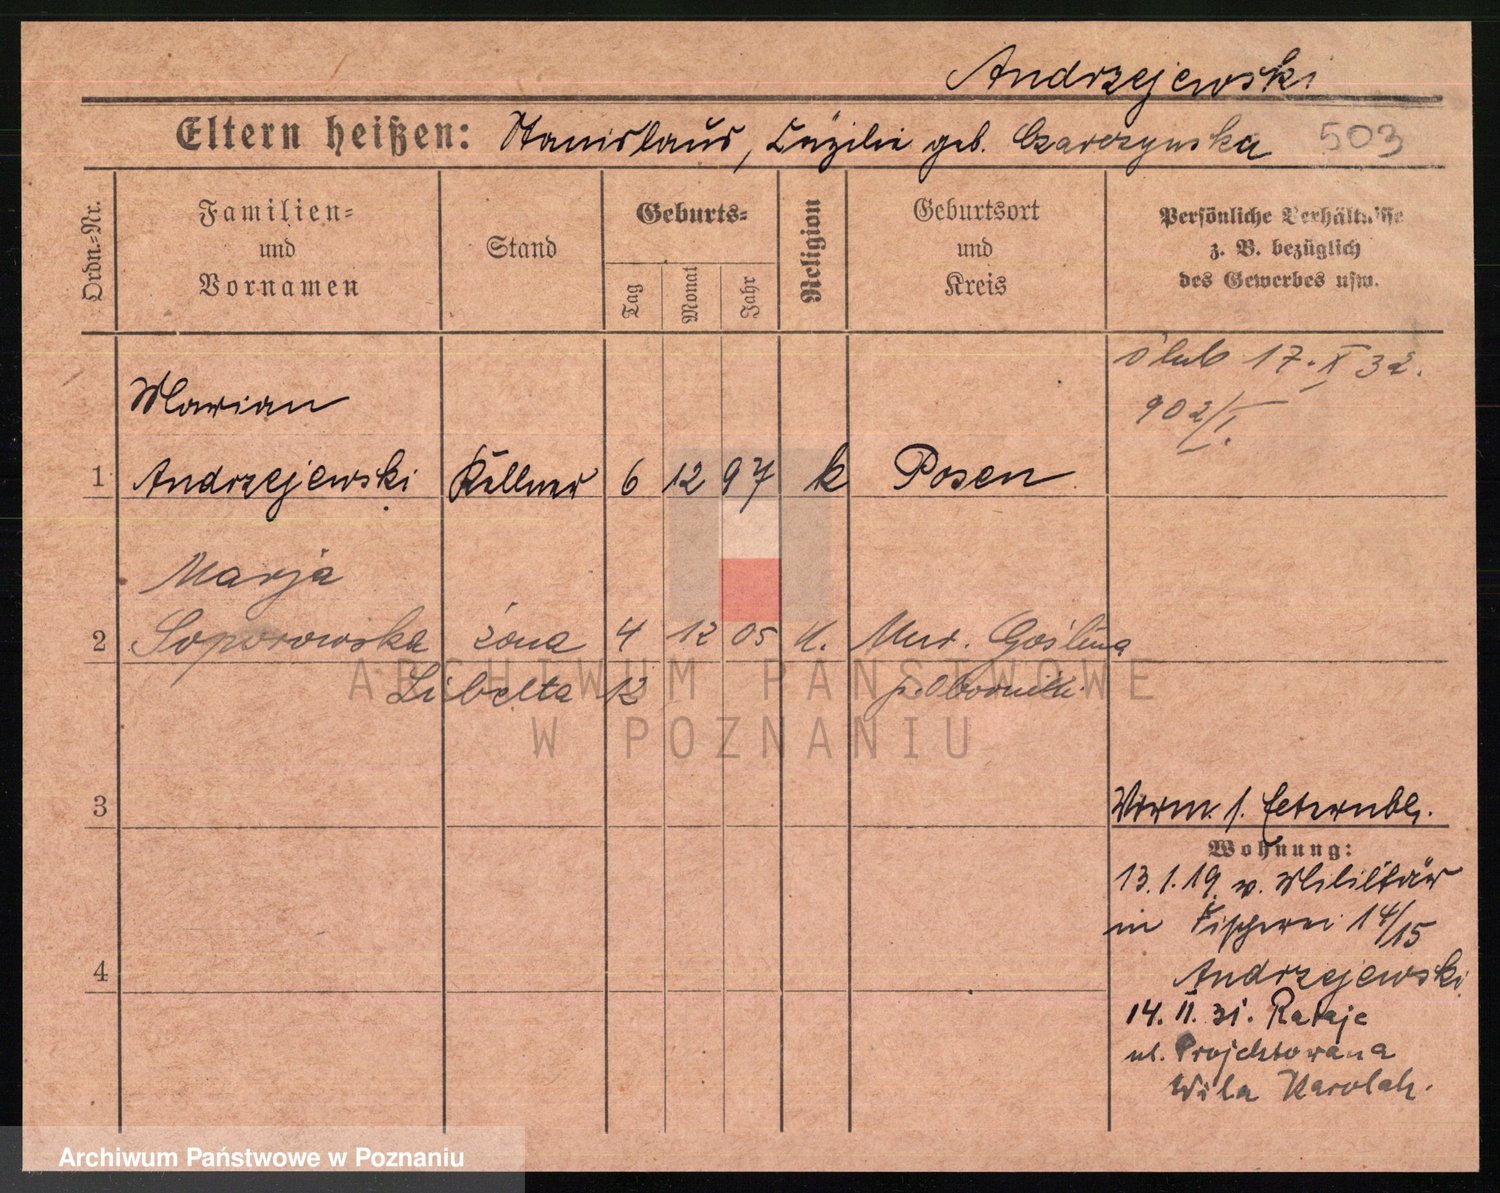 Andrzejewski
Eltern heißen: Stanislaus, Cäzilie geb. Czarczynska 503
Ordn.=Nr.
Familien=
und
Vornamen
Stand
Geburts=
Tag
Monat
Jahr
Religion
Geburtsort
und
Kreis
Persönliche Verhältnisse
z. B. bezüglich
des Gewerbes usw.
ślub 17.X 32.
902/I.
Marian
1 Andrzejewski Kellner 6 12 97 k Posen
Marja
2 Soporowska żona 4 12 05 k. Mur. Goślina
Libelta 12 p. Oborniki
3
Vorm. s. Elternbl.
Wohnung:
13.1.19 v. Militär
in Fischerei 14/15
Andrzejewski
4
14.II.31. Rataje
ul. Projektowana
Wila Karolah.
ARCHIWUM PAŃSTWOWE
W POZNANIU
Archiwum Państwowe w Poznaniu